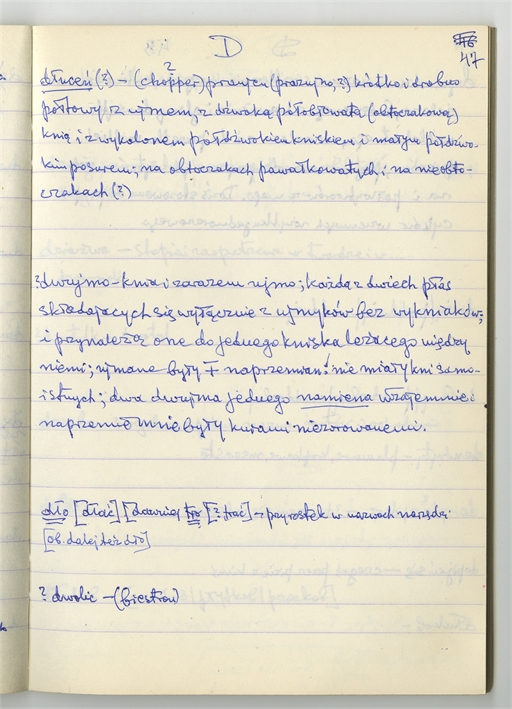 D
47
?
dłuceń (?) – (chopper) przeużu (przeujmo,?) krótko i drobno
półtowy z ujmem, z dźwoką półobłowatą (obłoczakową)
knią i z wykolonem półdźwokiem kniskiem i małym półdźwo-
kim posurem; na obłoczakach pawałkowatych i na nieobło-
czakach (?)
? dwujmo – knia i zarazem ujmo; każda z dwiech płas
składających się wyłącznie z ujmyków bez wykniaków,
i przynależą one do jednego kniska leżącego między
niemi; ujmane były naprzemian; nie miały kni samo-
istnych; dwa dwujma jednego namiena wzajemnie i
naprzemiennie były kurami niezorowanemi.
dło [dłać] [dawniej tło [? tłać] – przyrostek w nazwach narzędzi
[ob. dalej też dło]
? dwolic – (biestron)